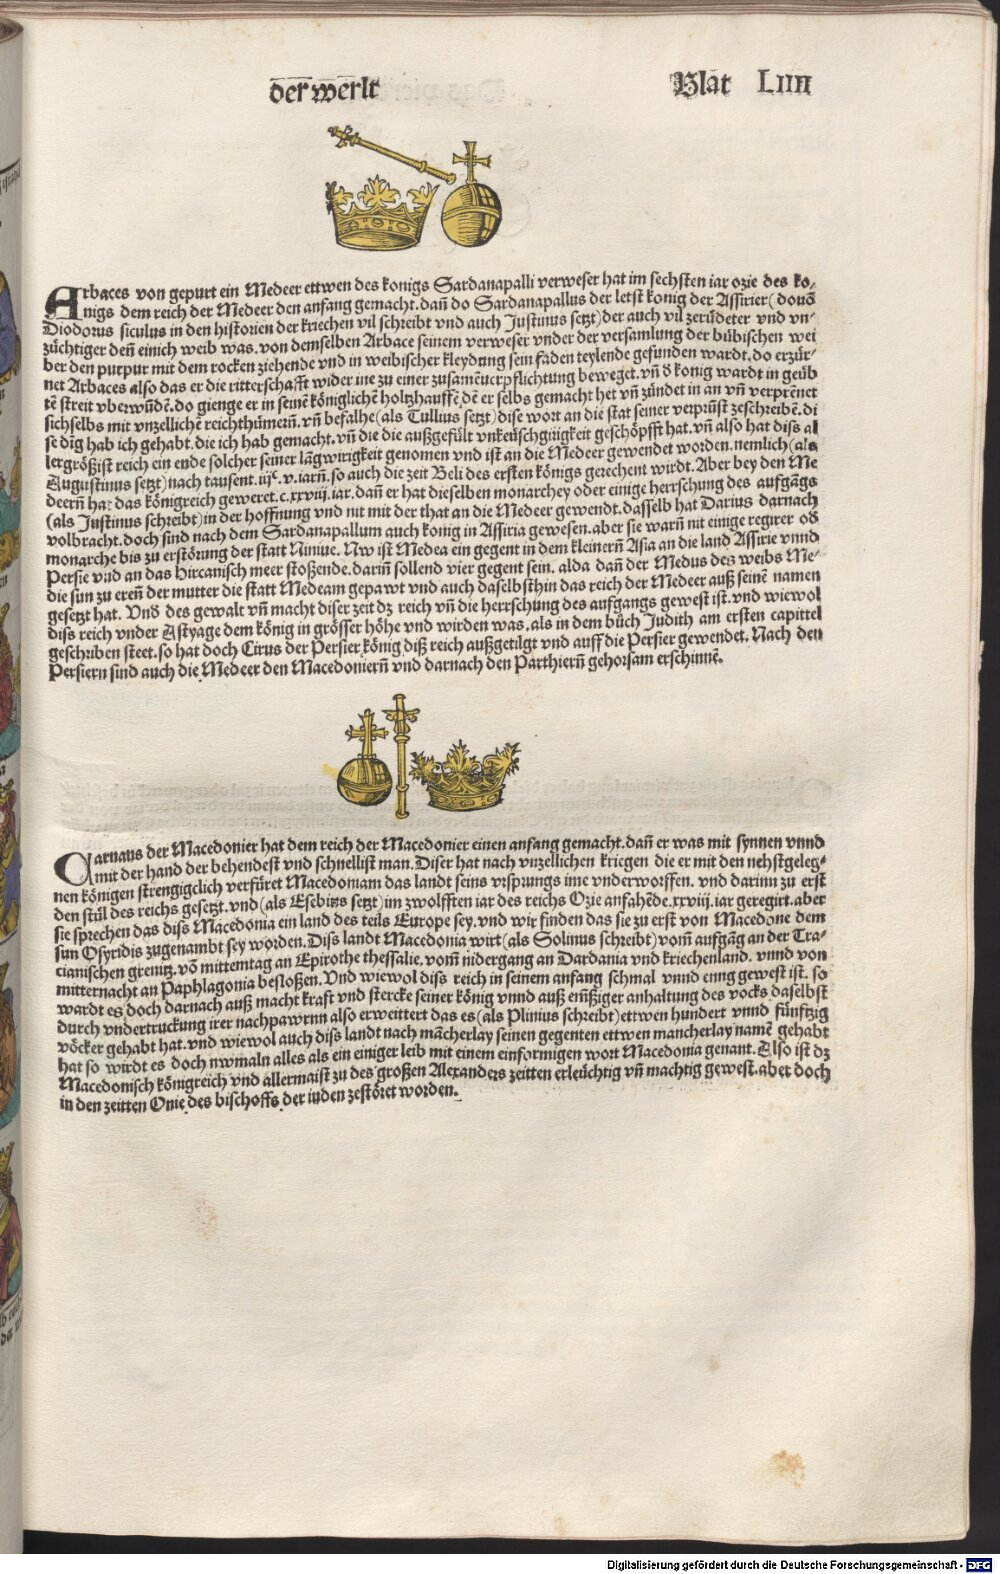 der werlt
Blat LIIII
Arbaces von gepurt ein Medeer ettwen des konigs Sardanapalli verweser hat im sechsten iar ozie des ko-
nigs dem reich der Medeer den anfang gemacht. dañ do Sardanapallus der letst konig der Assirier (douõ
Diodorus siculus in den historien der kriechen vil schreibt vnd auch Justinus setzt) der auch vil zerüdeter vnd vn-
züchtiger deñ einich weib was. von demselben Arbace seinem verweser vnder der versamlung der bübischen wei
ber den purpur mit dem rocken ziehende vnd in weibischer kleydung sein faden teylende gefunden wardt. do erzür-
net Arbaces also das er die ritterschafft wider ine zu einer zusamẽuerpflichtung beweget. vñ d̕ konig wardt in geüb
tẽ streit vberwũdẽ. do gienge er in seinẽ königlichẽ holtzhauffẽ dẽ er selbs gemacht het vñ zündet in an vñ verprẽnet
sichselbs mit vnzellichẽ reichthümerñ. vñ befalhe (als Tullius setzt) dise wort an die stat seiner verprũst zeschreibẽ. di
se dĩg hab ich gehabt. die ich hab gemacht. vñ die die außgefült vnkeüschgirigkeit geschöpfft hat. vñ also hat diss al
lergrößist reich ein ende solcher seiner lãgwirigkeit genomen vnd ist an die Medeer gewendet worden. nemlich (als
Augustinus setzt) nach tausent. iijc. v. iarñ. so auch die zeit Beli des ersten königs gerechent wirdt. Aber bey den Me
deerñ hat das königreich geweret. c. xxviij. iar. dañ er hat dieselben monarchey oder einige herrschung des aufgãgs
(als Justinus schreibt) in der hoffnung vnd nit mit der that an die Medeer gewendt. dasselb hat Darius darnach
volbracht. doch sind nach dem Sardanapallum auch konig in Assiria gewesen. aber sie warñ nit einige regirer od̕
monarche bis zu erstörung der statt Niniue. Nw ist Medea ein gegent in dem kleinerñ Asia an die land Assirie vnnd
Persie vnd an das Hircanisch meer stoßende. dariñ sollend vier gegent sein. alda dañ der Medus des weibs Me-
die sun zu ereñ der mutter die statt Medeam gepawt vnd auch daselbsthin das reich der Medeer auß seinẽ namen
gesetzt hat. Vnd̕ des gewalt vñ macht diser zeit dz reich vñ die herrschung des aufgangs gewest ist. vnd wiewol
diss reich vnder Astyage dem könig in grösser höhe vnd wirden was. als in dem bůch Judith am ersten capittel
geschriben steet. so hat doch Cirus der Persier könig diß reich außgetilgt vnd auff die Persier gewendet. Nach den
Persiern sind auch die Medeer den Macedonierñ vnd darnach den Parthierñ gehorsam erschinnẽ.
Carnaus der Macedonier hat dem reich der Macedonier einen anfang gemacht. dañ er was mit synnen vnnd
mit der hand der behendest vnd schnellist man. Diser hat nach vnzellichen kriegen die er mit den nehstgeleg-
nen königen strengigclich verfüret Macedoniam das landt seins vrsprungs ime vnderworffen. vnd darinn zu erst
den stůl des reichs gesetzt. vnd (als Esebius setzt) im zwolfften iar des reichs Ozie anfahẽde. xxviij. iar geregirt. aber
sie sprechen das diss Macedonia ein land des teils Europe sey. vnd wir finden das sie zu erst von Macedone dem
sun Osyridis zugenambt sey worden. Diss landt Macedonia wirt (als Solinus schreibt) vom̃ aufgãg an der Tra-
cianischen grenitz. võ mittemtag an Epirothe thessalie. vom̃ nidergang an Dardania vnd kriechenland. vnnd von
mitternacht an Paphlagonia besloßen. Vnd wiewol diss reich in seinem anfang schmal vnnd enng gewest ist. so
wardt es doch darnach auß macht kraft vnd stercke seiner könig vnnd auß em̃ßiger anhaltung des vocks daselbst
durch vndertruckung irer nachpawrnn also erweittert das es (als Plinius schreibt) ettwen hundert vnnd fünftzig
völcker gehabt hat. vnd wiewol auch diss landt nach mãcherlay seinen gegenten ettwen mancherlay namẽ gehabt
hat so wirdt es doch nwmaln alles als ein einiger leib mit einem einformigen wort Macedonia genant. Also ist dz
Macedonisch königreich vnd allermaist zu des großen Alexanders zeitten erleüchtig vñ machtig gewest. aber doch
in den zeitten Onie des bischoffs der iuden zestöret worden.
Digitalisierung gefördert durch die Deutsche Forschungsgemeinschaft - DFG